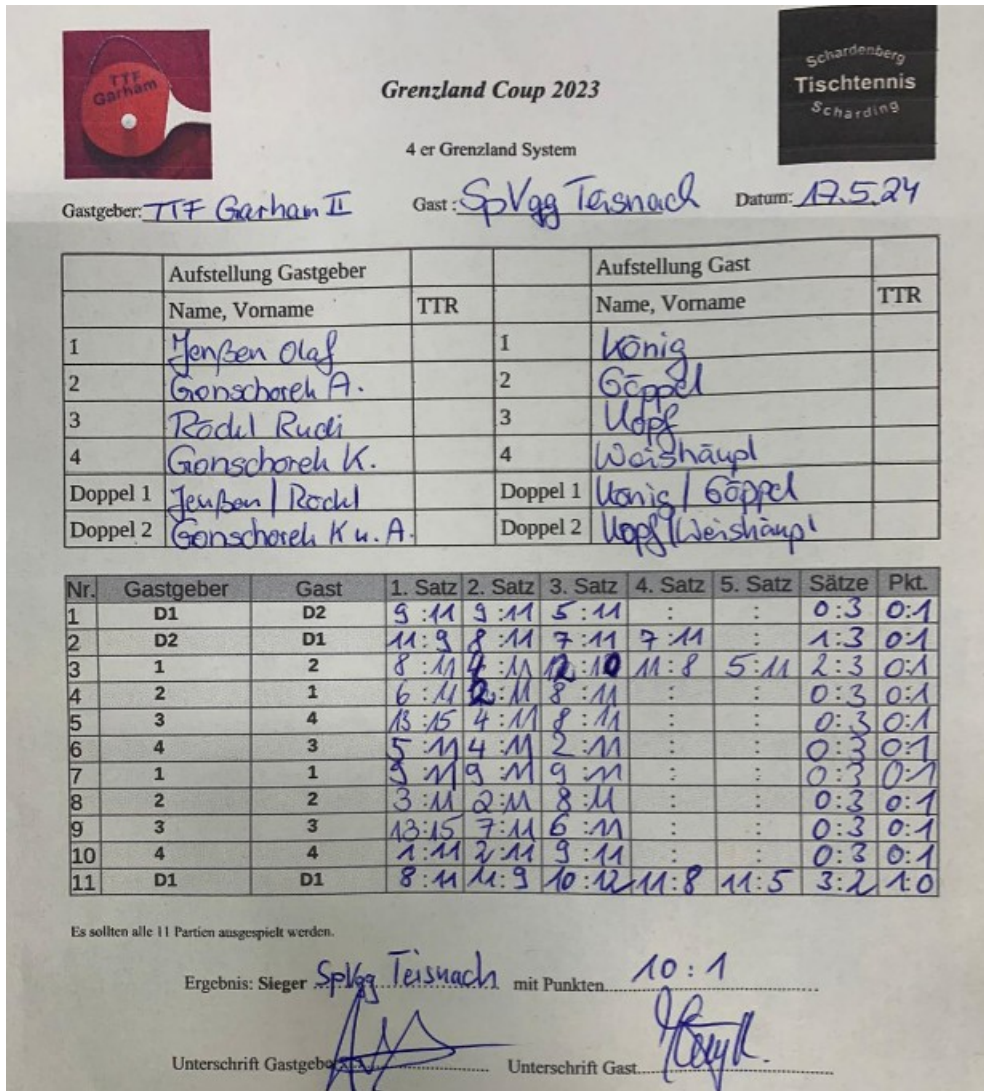 TTF
Garham
Schardenberg
Tischtennis
Scharding
Grenzland Coup 2023
4 er Grenzland System
Gastgeber: TTF Garham II Gast: SpVgg Teisnach Datum: 17.5.24
Aufstellung Gastgeber Aufstellung Gast
Name, Vorname TTR Name, Vorname TTR
1 Jenßen Olaf 1 König
2 Gonschorek A. 2 Göppel
3 Röckl Rudi 3 Kopf
4 Gonschorek K. 4 Weishäupl
Doppel 1 Jenßen / Röckl Doppel 1 König / Göppel
Doppel 2 Gonschorek K u. A. Doppel 2 Kopf / Weishäupl
Nr. Gastgeber Gast 1. Satz 2. Satz 3. Satz 4. Satz 5. Satz Sätze Pkt.
1 D1 D2 9:11 9:11 5:11 : : 0:3 0:1
2 D2 D1 11:9 8:11 7:11 7:11 : 1:3 0:1
3 1 2 8:11 4:11 12:10 11:8 5:11 2:3 0:1
4 2 1 6:11 2:11 8:11 : : 0:3 0:1
5 3 4 13:15 4:11 8:11 : : 0:3 0:1
6 4 3 5:11 4:11 2:11 : : 0:3 0:1
7 1 1 9:11 9:11 9:11 : : 0:3 0:1
8 2 2 3:11 2:11 8:11 : : 0:3 0:1
9 3 3 13:15 7:11 6:11 : : 0:3 0:1
10 4 4 1:11 2:11 9:11 : : 0:3 0:1
11 D1 D1 8:11 11:9 10:12 11:8 11:5 3:2 1:0
Es sollten alle 11 Partien ausgespielt werden.
Ergebnis: Sieger SpVgg Teisnach mit Punkten 10:1
Unterschrift Gastgeber Unterschrift Gast